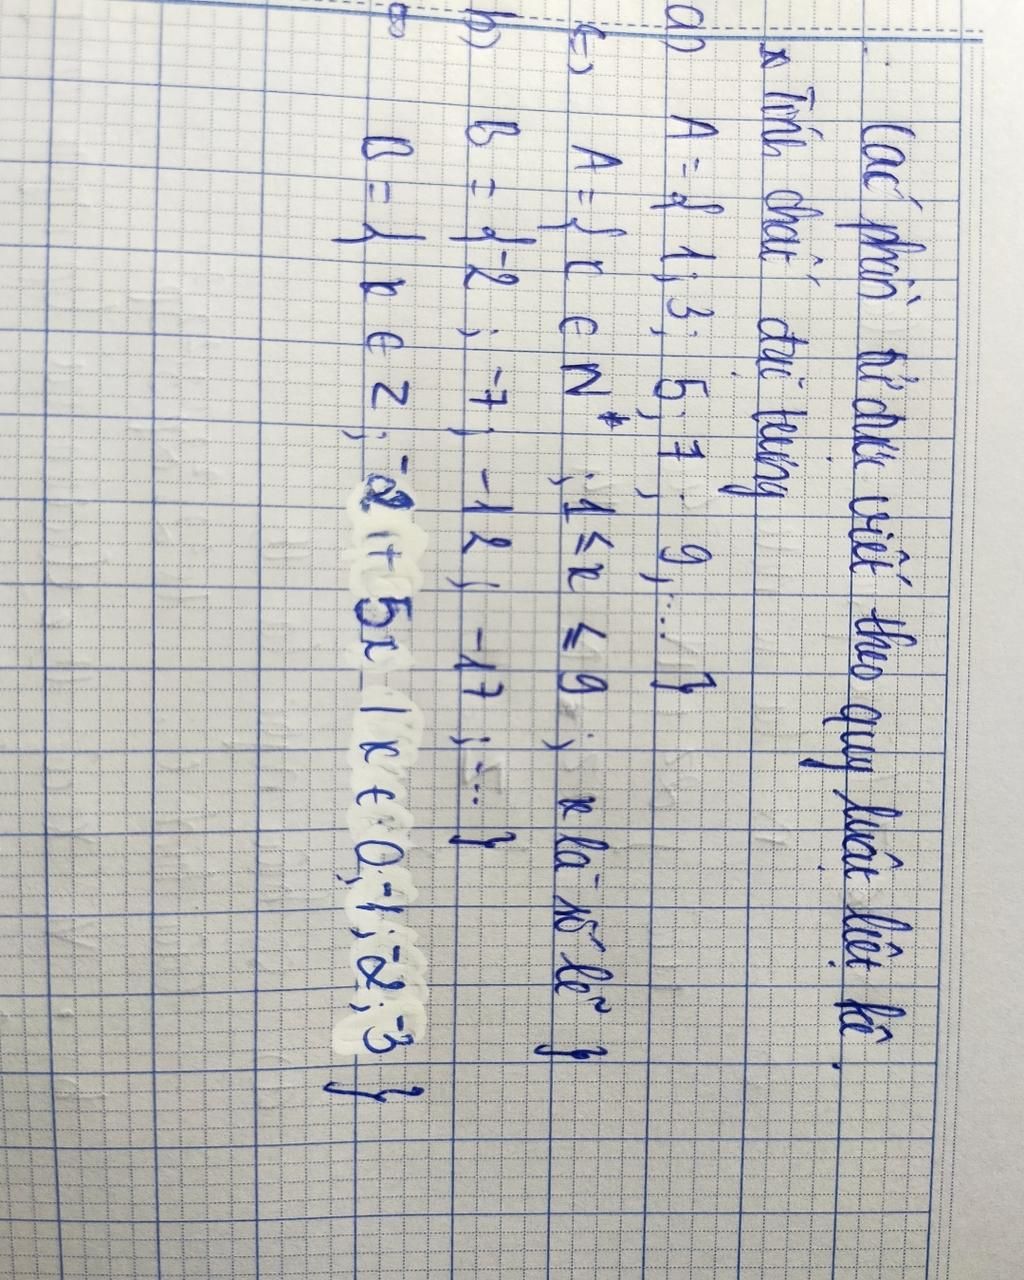 Các phần tử được viết theo quy luật liệt kê.
* Tính chất đặc trưng
a) A = { 1; 3; 5; 7; 9; ... }
(=) A = { x ∈ N* ; 1 ≤ x ≤ 9 ; x là số lẻ }
b) B = { -2 ; -7 ; -12 ; -17 ; ... }
B = { x ∈ Z ; -2 + 5x | x ∈ 0; -1; -2; -3 }